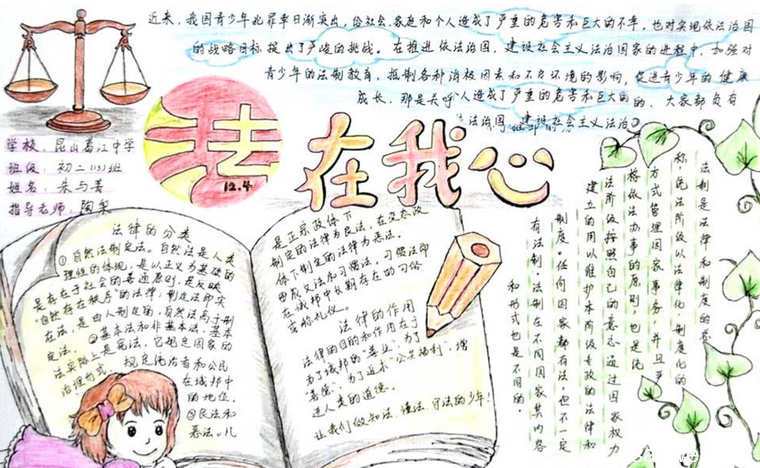 近来，我国青少年犯罪率日渐突出，给社会、家庭和个人造成了严重的危害和巨大的不幸，也对实现依法治国
的战略目标提出了严峻的挑战。在推进依法治国，建设社会主义法治国家的进程中，加强对
青少年的法制教育，抵制各种消极因素和不良环境的影响，促进青少年的健康
成长，那是关乎人造成了严重的危害和巨大的的，大家都负有
法治国，建设社会主义法治
学校：昆山葛江中学
班级：初二（13）班
姓名：朱与菁
指导老师：陶果
法
12.4
在我心
法律的分类
①自然法制定法。自然法是人类
理性的体现，是以正义为基础的
是存在于社会的普遍原则，是反映
自然存在秩序"的法律；制定法即实
在法，是由人制定的，自然法高于制
定法。②基本法和非基本法。基本
法实际上是宪法，它规定国家的
治理形式，规定统治者和公民
在城邦中
的地位。
③良法和
恶法。凡
是正宗政体下
制定的法律为良法，在变态政
体下制定的法律为恶法。
成文法和习惯法，习惯法即
在城邦中长期存在的习俗
或称礼仪。
法律的作用
法律的目的和作用在于
为了城邦的"善业"、为了
"善德"、为了追求"公众福利"，增
进人类的道德。
让我们做知法、懂法、守法的少年！
法制是法律和制度的总
称，统治阶级以法律化、制度化的
方式管理国家事务，并且严
格依法办事的原则，也是统
治阶级按照自己的意志通过国家权力
建立的用以维护本阶级专政的法律和
制度。任何国家都有法，但不一定
有法制。法制在不同国家其内容
和形式也是不同的。